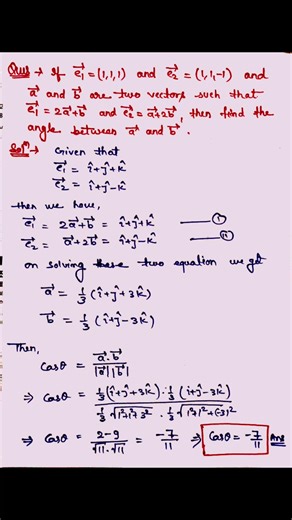 Ques → If e₁⃗ = (1,1,1) and e₂⃗ = (1,1,-1) and
a⃗ and b⃗ are two vectors such that
e₁⃗ = 2a⃗+b⃗ and e₂⃗ = a⃗+2b⃗, then find the
angle between a⃗ and b⃗.
Solⁿ → Given that
e₁⃗ = î+ĵ+k̂
e₂⃗ = î+ĵ-k̂
then we have,
e₁⃗ = 2a⃗+b⃗ = î+ĵ+k̂ —— (i)
e₂⃗ = a⃗+2b⃗ = î+ĵ-k̂ —— (ii)
on solving these two equation we get
a⃗ = 1/3 (î+ĵ+3k̂)
b⃗ = 1/3 (î+ĵ-3k̂)
Then,
Cosθ = a⃗.b⃗ / |a⃗||b⃗|
⇒ Cosθ = 1/3(î+ĵ+3k̂).1/3(î+ĵ-3k̂) / 1/3√1²+1²+3² . 1/3√1²+1²+(-3)²
⇒ Cosθ = 2-9 / √11.√11 = -7/11 ⇒ Cosθ = -7/11 Ans